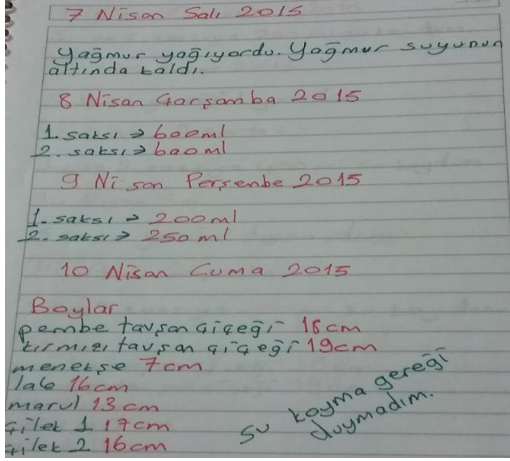 7 Nisan Salı 2015
Yağmur yağıyordu. Yağmur suyunun
altında kaldı.
8 Nisan Çarşamba 2015
1. saksı → 600ml
2. saksı → 600ml
9 Nisan Perşenbe 2015
1. saksı → 200ml
2. saksı → 250 ml
10 Nisan Cuma 2015
Boylar
pembe tavşan çiçeği 18cm
kırmızı tavşan çiçeği 19cm
menekşe 7cm
lale 16cm
marul 13 cm
çilek 1 17cm
çilek 2 16cm
su koyma gereği
duymadım.